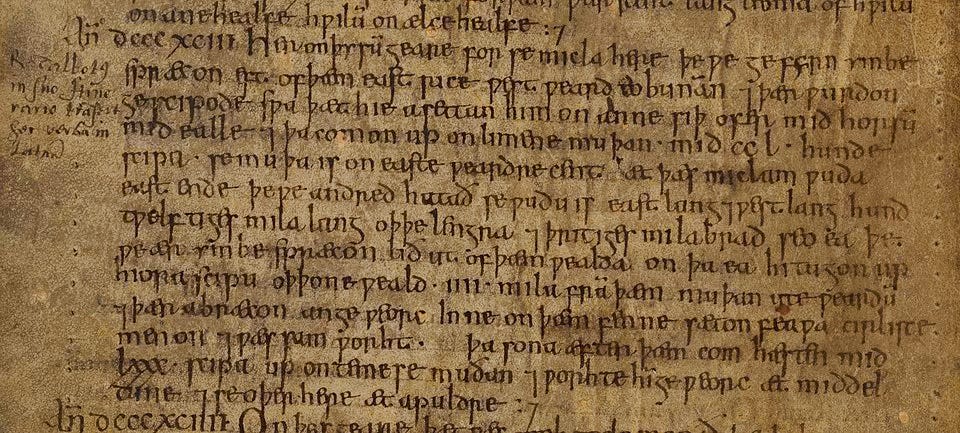 on ane healfe hƿilū on ælce healfe :⁊
Añ dcccxciii Her on þysū geare for se micla here þe ƿe gefyrn ymbe
spræcon eft of þæm east rice ƿest ƿeard to bunnan ⁊ þær ƿurdon
gescipode sƿa þæt hie asettan him on anne siþ ofer mid horsū
mid ealle ⁊ þa comon up on limene muþan · mid ccl · hunde
scipa · se muþa is on easte ƿeardre cent · æt þæs miclam ƿuda
east ende þe ƿe andred hatað se ƿudu is east lang ⁊ ƿest lang hund
tƿelftiges mila lang oþþe lengra ⁊ þritiges mila brad seo ea þe
ƿe ær ymbe spræcon lið ut of þæm ƿealda on þa ea hi tugon up
hiora scipu oþ þone ƿeald · iiii · mila frā þæm muþan ute ƿeardū
⁊ þær abræcon an geƿeorc Inne on þæm fenne sæton feaƿa cirlisce
men on ⁊ ƿæs sam ƿorht · þa sona æfter þæm com hæsten mid
lxxx · scipa up on temese muðan ⁊ ƿorhte hī geƿeorc æt middel
tune ⁊ se oþer here æt apuldre :⁊
Añ dcccxciiii On þys geare